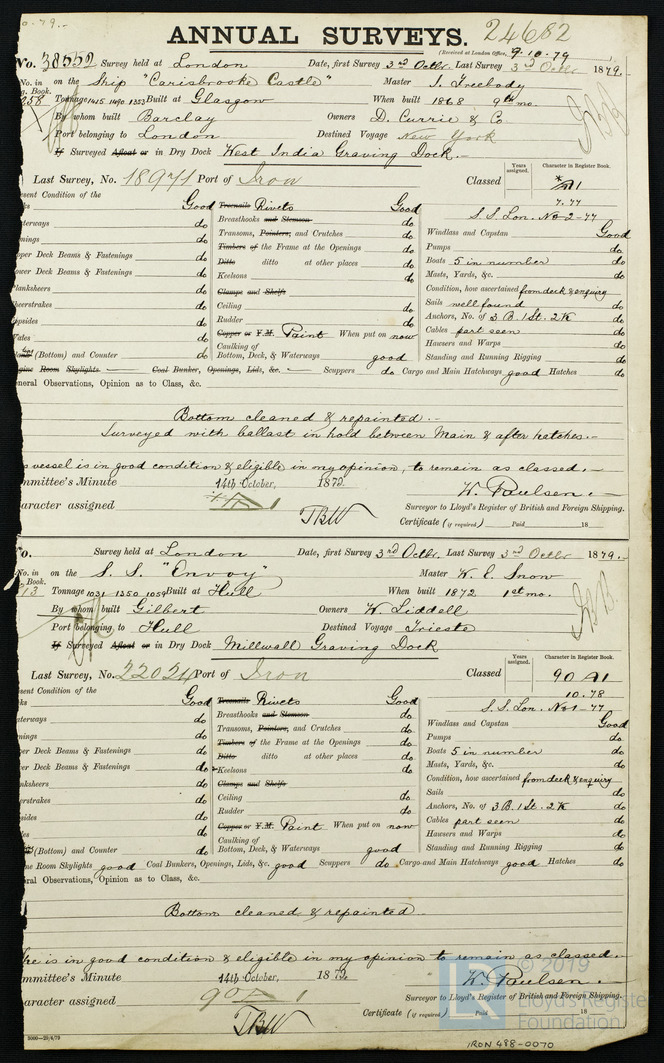 ANNUAL SURVEYS. 24682
(Received at London Office, 9.10.79
No. 38552 Survey held at London Date, first Survey 3rd Octbr. Last Survey 3rd Octbr 1879.
No. in on the Ship "Carisbrooke Castle" Master I. Freebody
Book.
258 Tonnage 1415 1490 1353 Built at Glasgow When built 1868 9th mo.
By whom built Barclay Owners D. Currie & Co
Port belonging to London Destined Voyage New York
If Surveyed Afloat or in Dry Dock West India Graving Dock.
Last Survey, No. 18971 Port of Iron Classed
Years assigned.
Character in Register Book.
A1
7.77
S.S. Lon. No 2-77
sent Condition of the
Good Treenails Rivets Good
Breasthooks and Stemson do
aterways do Transoms, Pointers, and Crutches do Windlass and Capstan Good
nings do Timbers of the Frame at the Openings do Pumps do
pper Deck Beams & Fastenings do Ditto ditto at other places do Boats 5 in number do
ower Deck Beams & Fastenings do Keelsons do Masts, Yards, &c. do
lanksheers do Clamps and Shelfs Condition, how ascertained from deck & enquiry
heerstrakes do Ceiling do Sails well found do
opsides do Rudder do Anchors, No. of 3 B. 1 St. 2 K do
Vales do Copper or Y.M. Paint When put on now Cables part seen do
Caulking of Hawsers and Warps do
(Bottom) and Counter do Bottom, Deck, & Waterways good Standing and Running Rigging do
gine Room Skylights Coal Bunker, Openings, Lids, &c. Scuppers do Cargo and Main Hatchways good Hatches do
neral Observations, Opinion as to Class, &c.
Bottom cleaned & repainted.
Surveyed with ballast in hold between Main & after hatches.
s vessel is in good condition & eligible in my opinion, to remain as classed.
mmittee's Minute 14th October, 1879 W. Paulsen.
aracter assigned Surveyor to Lloyd's Register of British and Foreign Shipping.
TBW Certificate (if required) Paid 18
No. Survey held at London Date, first Survey 3rd Octbr. Last Survey 3rd Octbr 1879.
No. in on the S. S. "Envoy" Master W. E. Snow
Book.
313 Tonnage 1031 1350 1059 Built at Hull When built 1872 1st mo.
By whom built Gilbert Owners W. Liddell
Port belonging to Hull Destined Voyage Trieste
If Surveyed Afloat or in Dry Dock Millwall Graving Dock
Last Survey, No. 22024 Port of Iron Classed
Years assigned.
Character in Register Book.
90 A1
10.78
S.S. Lon. No 1-77
sent Condition of the
ks Good Treenails Rivets Good
Breasthooks and Stemson do
aterways do Transoms, Pointers, and Crutches do Windlass and Capstan Good
nings do Timbers of the Frame at the Openings do Pumps do
per Deck Beams & Fastenings do Ditto ditto at other places do Boats 5 in number do
er Deck Beams & Fastenings do Keelsons do Masts, Yards, &c. do
nksheers do Clamps and Shelfs Condition, how ascertained from deck & enquiry
erstrakes do Ceiling do Sails do
sides do Rudder do Anchors, No. of 3 B. 1 St. 2 K do
les do Copper or Y.M. Paint When put on now Cables part seen do
Caulking of Hawsers and Warps do
(Bottom) and Counter do Bottom, Deck, & Waterways good Standing and Running Rigging do
ne Room Skylights good Coal Bunkers, Openings, Lids, &c. good Scuppers do Cargo and Main Hatchways good Hatches do
ral Observations, Opinion as to Class, &c.
Bottom cleaned & repainted
he is in good condition & eligible in my opinion to remain as classed.
mmittee's Minute 14th October, 1879 W. Paulsen.
aracter assigned 90 A 1 Surveyor to Lloyd's Register of British and Foreign Shipping.
TBW Certificate (if required) Paid 18
LR © 2019
Lloyd's Register
Foundation
IRON 488-0070